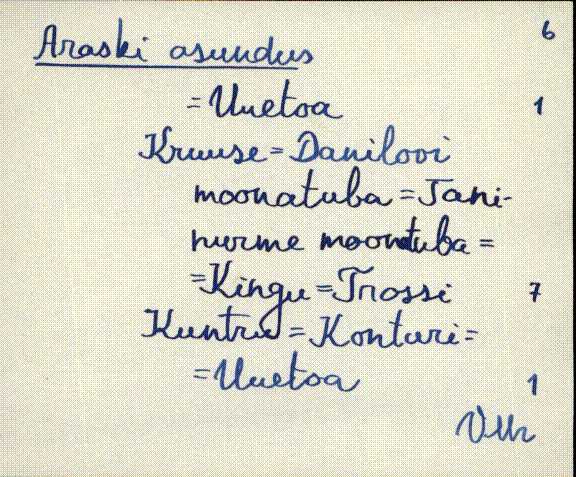 6
Araski asundus
= Uuetoa 1
Kruuse = Danilovi
moonatuba = Jani-
nurme moonatuba =
= Kingu = Trossi 7
Kuntru = Konturi =
= Uuetoa 1